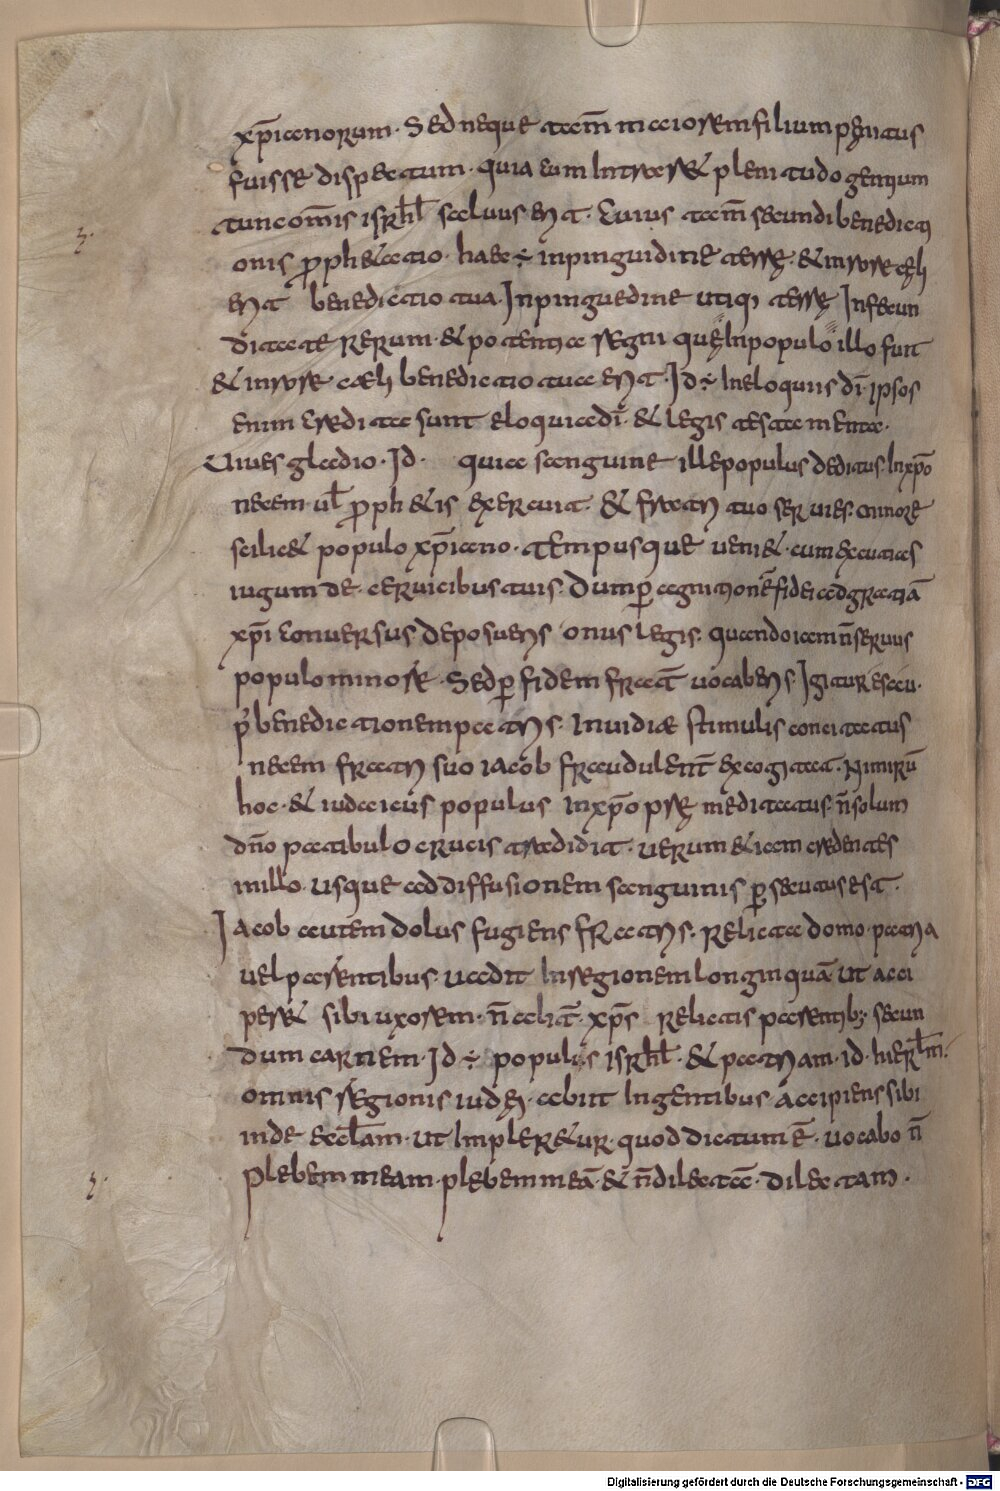 xp̄ianorum. Sed neque tam̄ maiorem filium penitus
fuisse dispectum. quia cum Intraret plenitudo gentium
tunc om̄is isrh̄l saluus erit. Cuius tam̄ secundi benedicti
onis prophetatio. haec ÷ inpinguidine terrę. & in rore cęli
erit benedictio tua. Inpinguedine utiq; terrę Infecun
ditate rerum. & potentia regni quę Inpopulo illo fuit
& in rore cæli benedictio tua erit. Id ÷ Ineloquiis dī. ipsos
enim credita sunt eloquia dī. & legis testamenta.
Viues gladio. Id. quia sanguine ille populus deditus. Inxp̄o
necem ul̄ proph&is exercuit. & fratri tuo seruies. minore
scilic& populo xp̄iano. Tempusque ueni&. cum excutias
iugum de ceruicibus tuis. Dum per cognitionē fidei ad gratiā
xp̄i conuersus deposueris onus legis. quando iam n̄ seruus
populo minore. Sed per fidem frat̄ uocaberis. Igitur esau.
p̄ benedictionem patris. Inuidiæ stimulis concitatus
necem fratri suo iacob fraudulent̄ excogitat. Nimirū
hoc. & iudaicus populus inxp̄o prę meditatus. n̄ solum
dn̄o patibulo crucis tradidit. uerum &iam credentes
in illo. usque ad diffusionem sanguinis persecutus est.
Iacob autem dolus fugiens fratris. Relicta domo. patria
uel parentibus. uadit Inregionem longinquā ut acci
per& sibi uxorem. n̄ alit̄. xp̄s relictis parentib; secun
dum carnem. Id ÷ populis isrh̄l. & patriam. id. hierl̄m.
omnis regionis iudę. abiit Ingentibus. accipiens sibi
inde eccl̄am. ut Impler&ur. quod dictum ē. uocabo n̄
plebem meam. plebem meā. & n̄ dilectā. dilectam.
Digitalisierung gefördert durch die Deutsche Forschungsgemeinschaft - DFG